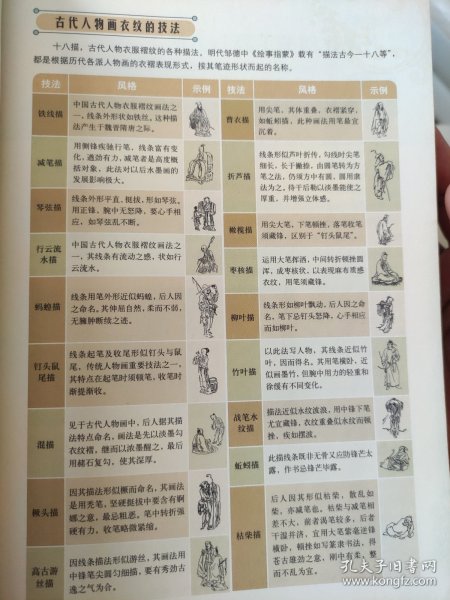 古代人物画衣纹的技法
十八描，古代人物衣服褶纹的各种描法。明代邹德中《绘事指蒙》载有“描法古今一十八等”，
都是根据历代各派人物画的衣褶表现形式，按其笔迹形状而起的名称。
技法 风格 示例
铁线描
中国古代人物衣服褶纹画法之
一，线条外形状如铁丝，这种描
法产生于魏晋隋唐之际。
减笔描
用侧锋疾驰行笔，线条富有变
化，遒劲有力，减笔者是高度概
括对象，此法对以后水墨画的
发展影响极大。
琴弦描
线条外形平直、挺拔，形如琴弦。
用正锋，腕中无怒降，要心手相
应，如琴弦乱不断。
行云流
水描
中国古代人物衣服褶纹画法之
一，其线条有流动之感，状如行
云流水。
蚂蝗描
线条用笔外形近似蚂蝗，后人因
之命名。其伸屈自然，柔而不弱，
无臃肿断续之迹。
钉头鼠
尾描
线条起笔及收尾形似钉头与鼠
尾，传统人物画重要技法之一，
其特点在起笔时须顿笔，收笔时
渐提渐收。
混描
见于古代人物画中，后人据其描
法特点命名，画法是先以淡墨勾
衣纹褶，继而以浓墨醒之，最后
用赭石复勾，使其深厚。
橛头描
因其描法形似橛而命名，其画法
是用秃笔，坚硬挺拔中要含有婀
娜之意，最忌粗恶。笔中转折强
硬有力，收笔略微紧缩。
高古游
丝描
因线条描法形似游丝，其画法用
中锋笔尖圆匀细描，要有秀劲古
逸之气为合。
技法 风格 示例
曹衣描
用尖笔，其体重叠，衣褶紧穿，
如蚯蚓描，此种画法用笔最宜
沉着。
折芦描
线条形似芦叶折传，勾线时尖笔
细长，长于撇捺，由圆笔转为方
笔之法，仍须方中有圆，圆用隶
法为之，待干后勒以淡墨能使之
厚重，并增强立体感。
橄榄描
用尖大笔，下笔顿挫，落笔收笔
须藏锋，区别于“钉头鼠尾”。
枣核描
运用大笔挥洒，中间转折顿挫圆
浑，成枣核状，以表现麻布质感
衣纹，用笔须藏锋。
柳叶描
线条形如柳叶飘动，后人因之命
名，笔下忌钉头怒降，心手相应
而如柳叶。
竹叶描
以此法写人物，其线条近似竹
叶，因而得名。其用笔横卧，近
似画墨竹，但腕中用力的轻重和
徐缓有不同变化。
战笔水
纹描
描法近似水纹波浪，用中锋下笔
尤宜藏锋，衣纹重叠似水纹而顿
挫，疾如摆波。
蚯蚓描
此描线条既非无骨又应防锋芒太
露，作书忌锋芒毕露。
枯柴描
后人因其形似枯柴，散乱如
柴，亦减笔也，枯柴与减笔相
差不大，前者渴笔较多，后者
干湿并济，宜用大笔紧逆锋
横卧，顿挫如写篆隶书法，得
苍古雄劲之意，刚中有柔，整
而不乱为宜。
孔夫子旧书网
www.kongfz.com